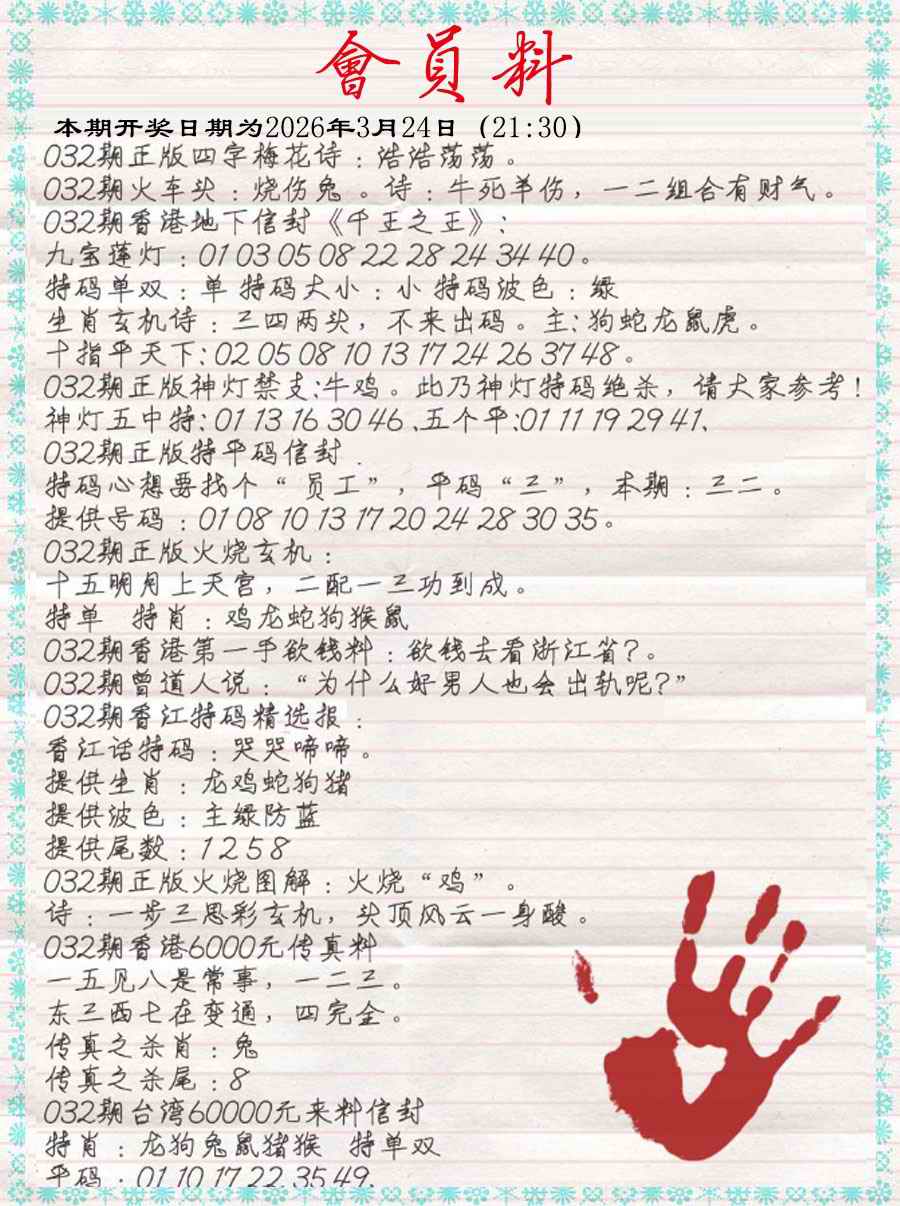 會員料
本期开奖日期为2026年3月24日（21:30）
032期正版四字梅花诗：浩浩荡荡。
032期火车头：烧伤兔。诗：牛死羊伤，一二组合有财气。
032期香港地下信封《千王之王》：
九宝莲灯：01 03 05 08 22 28 24 34 40。
特码单双：单 特码大小：小 特码波色：绿
生肖玄机诗：三四两头，不来出码。主：狗蛇龙鼠虎。
十指平天下：02 05 08 10 13 17 24 26 37 48。
032期正版神灯禁支：牛鸡。此乃神灯特码绝杀，请大家参考！
神灯五中特：01 13 16 30 46、五个平：01 11 19 29 41、
032期正版特平码信封.
特码心想要找个“员工”，平码“三”，本期：三二。
提供号码：01 08 10 13 17 20 24 28 30 35。
032期正版火烧玄机：
十五明月上天宫，二配一三功到成。
特单 特肖：鸡龙蛇狗猴鼠
032期香港第一手欲钱料：欲钱去看浙江省？。
032期曾道人说：“为什么好男人也会出轨呢？”
032期香江特码精选报：
香江话特码：哭哭啼啼。
提供生肖：龙鸡蛇狗猪
提供波色：主绿防蓝
提供尾数：1 2 5 8
032期正版火烧图解：火烧“鸡”。
诗：一步三思彩玄机，头顶风云一身酸。
032期香港6000元传真料
一五见八是常事，一二三。
东三西七在变通，四完全。
传真之杀肖：兔
传真之杀尾：8
032期台湾60000元来料信封
特肖：龙狗兔鼠猪猴 特单双
平码：01 10 17 22 35 49、